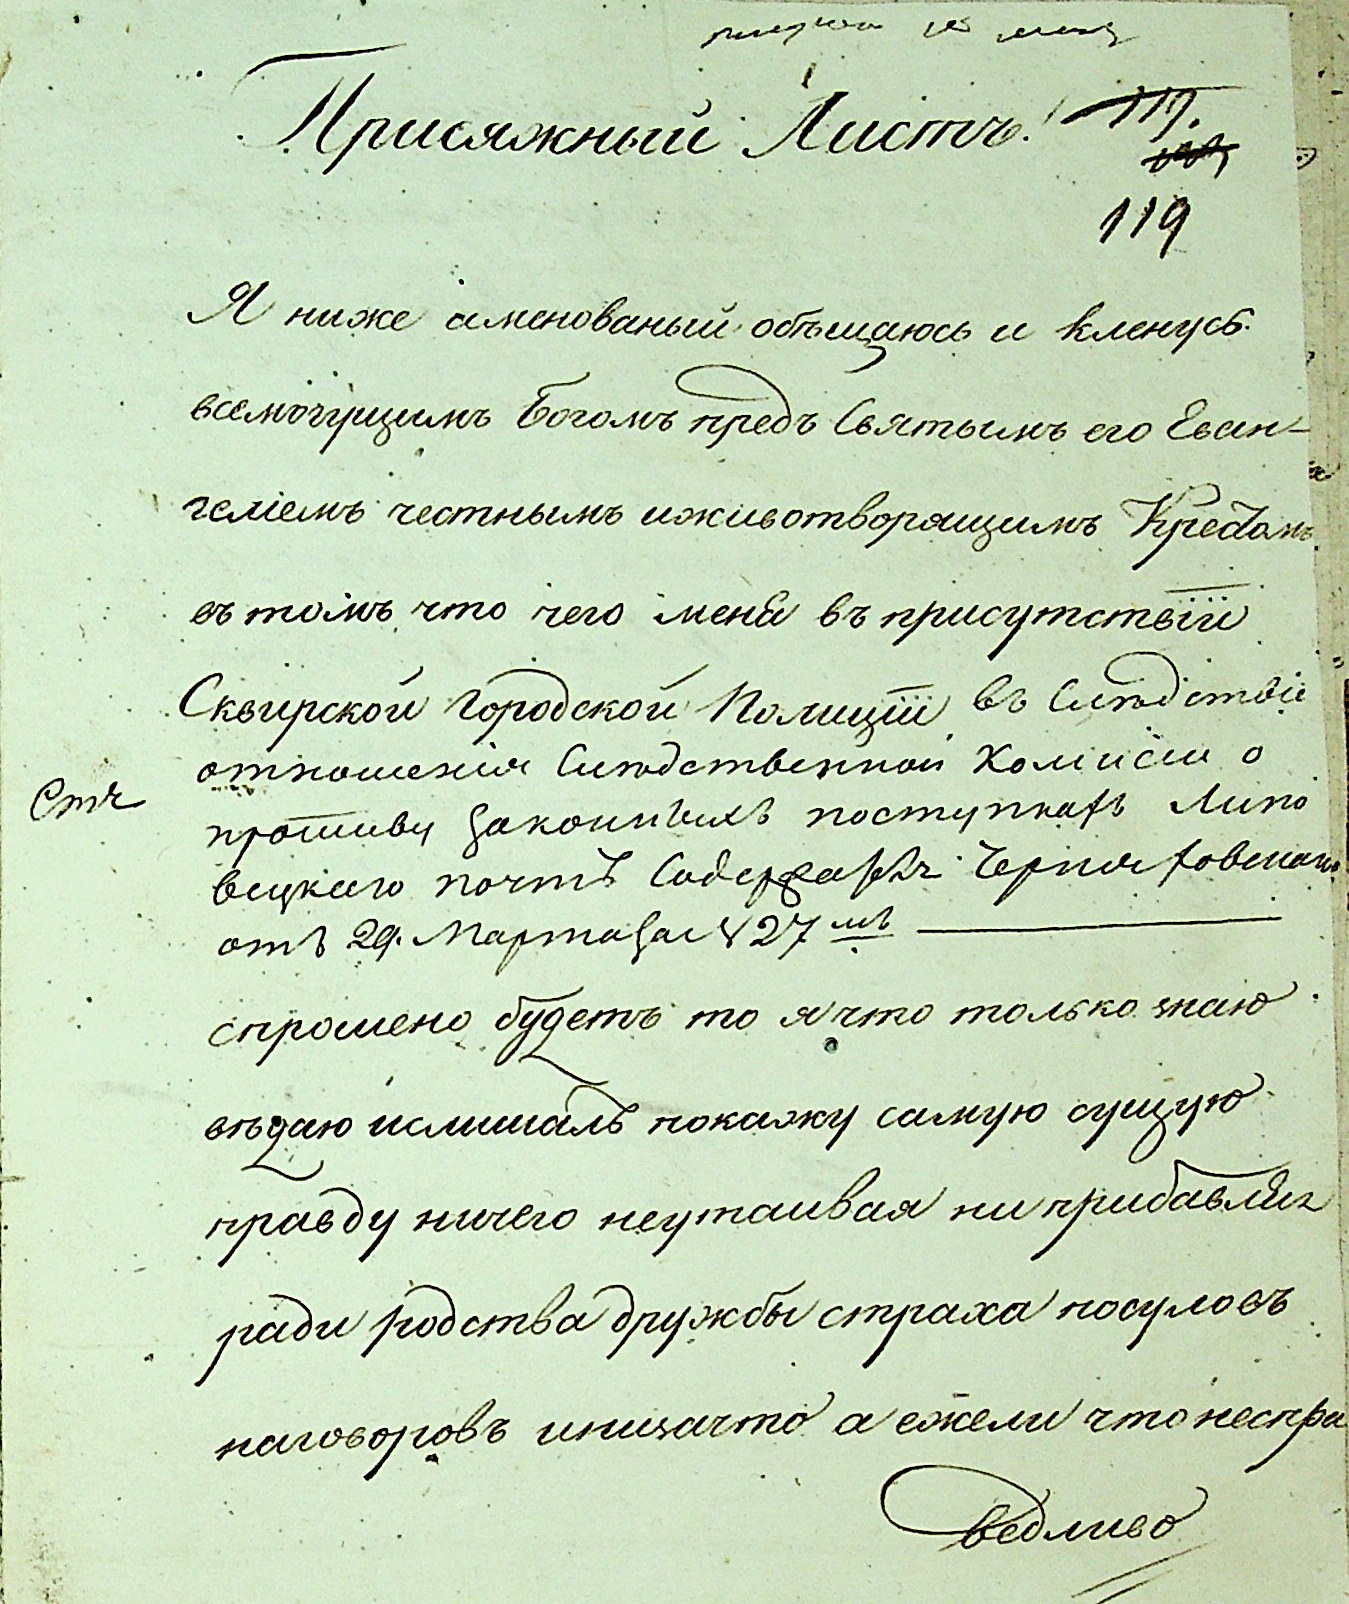 Присяжный Листъ.
117.
119
Я ниже именованый обѣщаюсь и кленусь
всемогущимъ Богомъ предъ Святымъ его Еван-
геліемъ честнымъ иживотворящимъ Крестомъ
въ томъ что чего меня въ присутствіи
Сквирской Городской Полиціи въ Слѣдствіе
отношенія Слѣдственной Комисіи о
противу Законныхъ поступкахъ Липо
вецкаго почтъ Содержателя Черняховскаго
отъ 29. Марта 827 мъ
спрошено будетъ то я что только знаю
вѣдаю ислишалъ покажу самую сущую
правду ничего неутаивая ни прибавляя
ради родства дружбы страха посуловъ
наговоровъ инизачто а ежели что неспра
ведливо